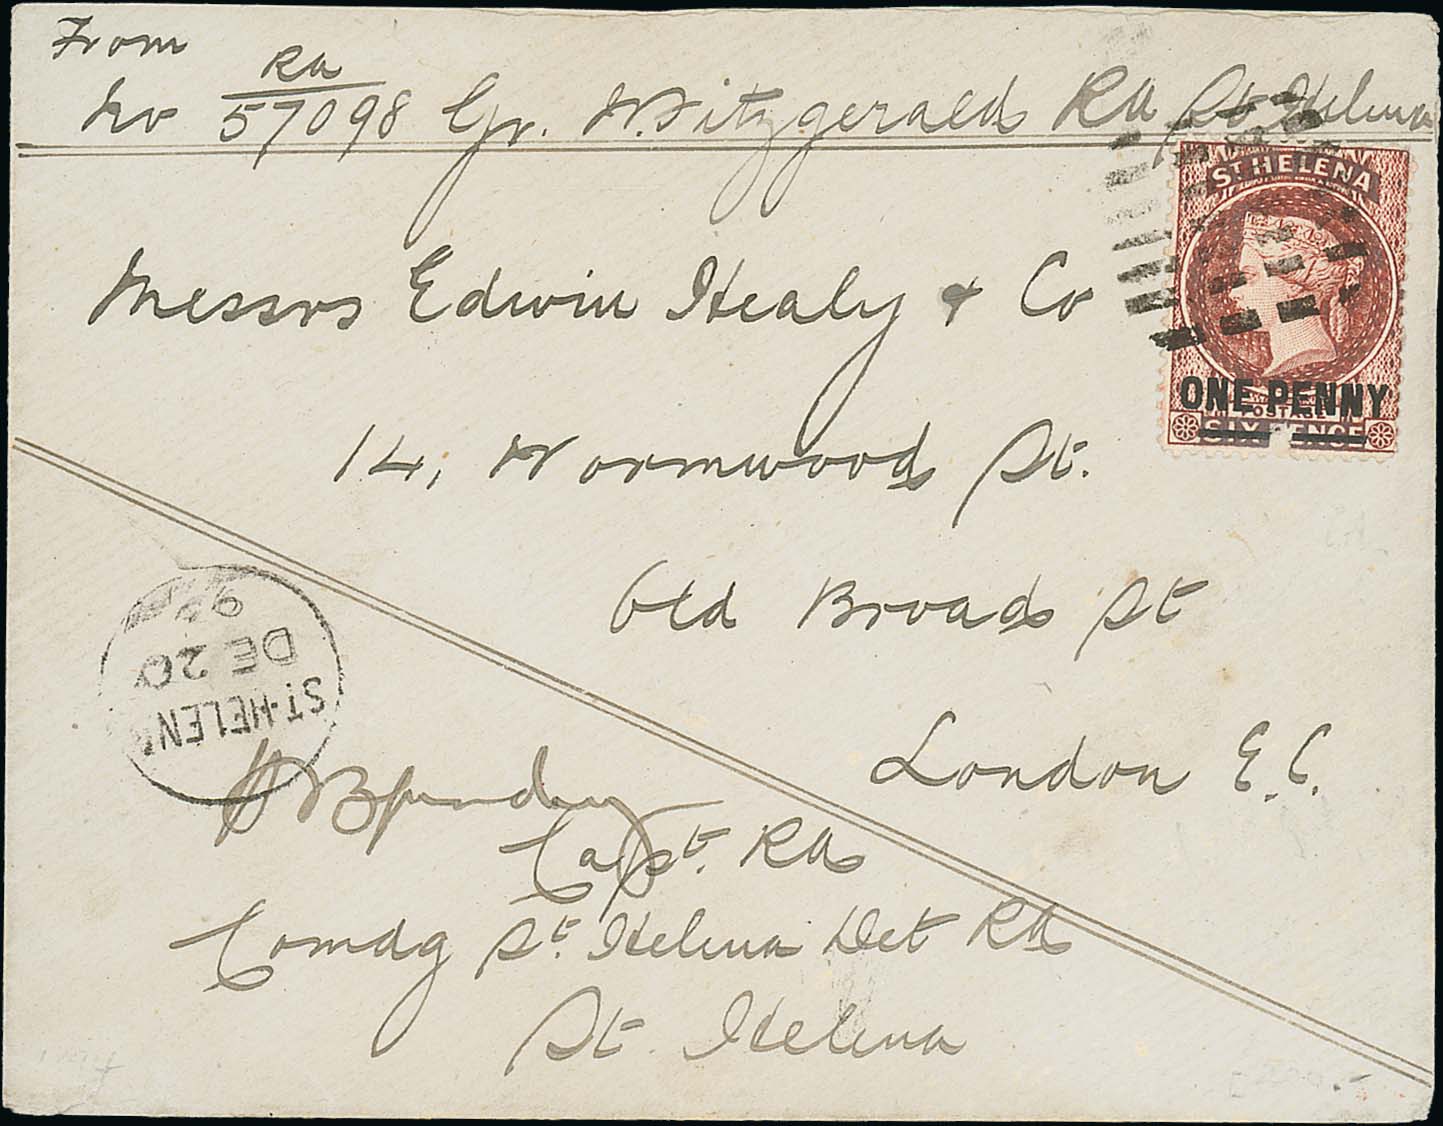 From
RA
No 57098 Gr. W. Fitzgerald RA St Helena
ST HELENA
ONE PENNY
POSTAGE
SIX PENCE
Messrs Edwin Healy & Co
14, Wormwood St.
Old Broad St
London E.C.
ST. HELENA
DE 20
95
Capt. RA
Comdg St. Helena Det RA
St. Helena